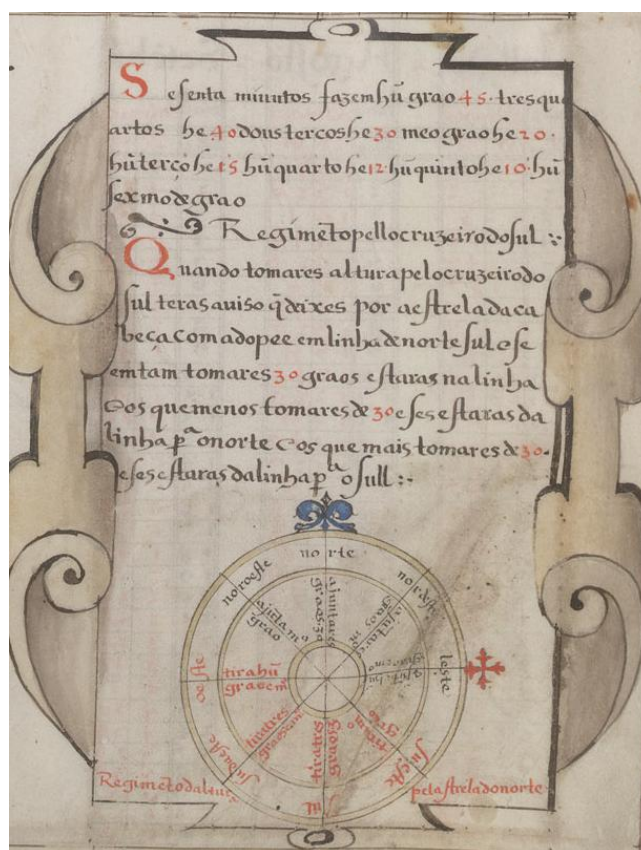 Sesenta minutos fazem hũ grao 45. tres qu
artos he 40 dous tercos he 30 meo grao he 20.
hũ terço he 15 hũ quarto he 12. hũ quinto he 10. hũ
sexmo de grao
Regimẽto pello cruzeiro do sul :·
Quando tomares altura pelo cruzeiro do
sul teras auiso q̃ deixes por a estrela da ca
beça com a do pee em linha de norte sul o se
emtam tomares 30 graos estaras na linha
e os que menos tomares de 30 eses estaras da
linha p.ª o norte e os que mais tomares de 30.
eses estaras da linha p.ª o sull :·
norte
noroeste
nordeste
oeste
leste
sudueste
sueste
sul
ajuntares
graos
ajuta mº
grao
tira hũ
grao e mº
tira tres
graos
tira
grao
Regimẽto daltura
pela strela do norte